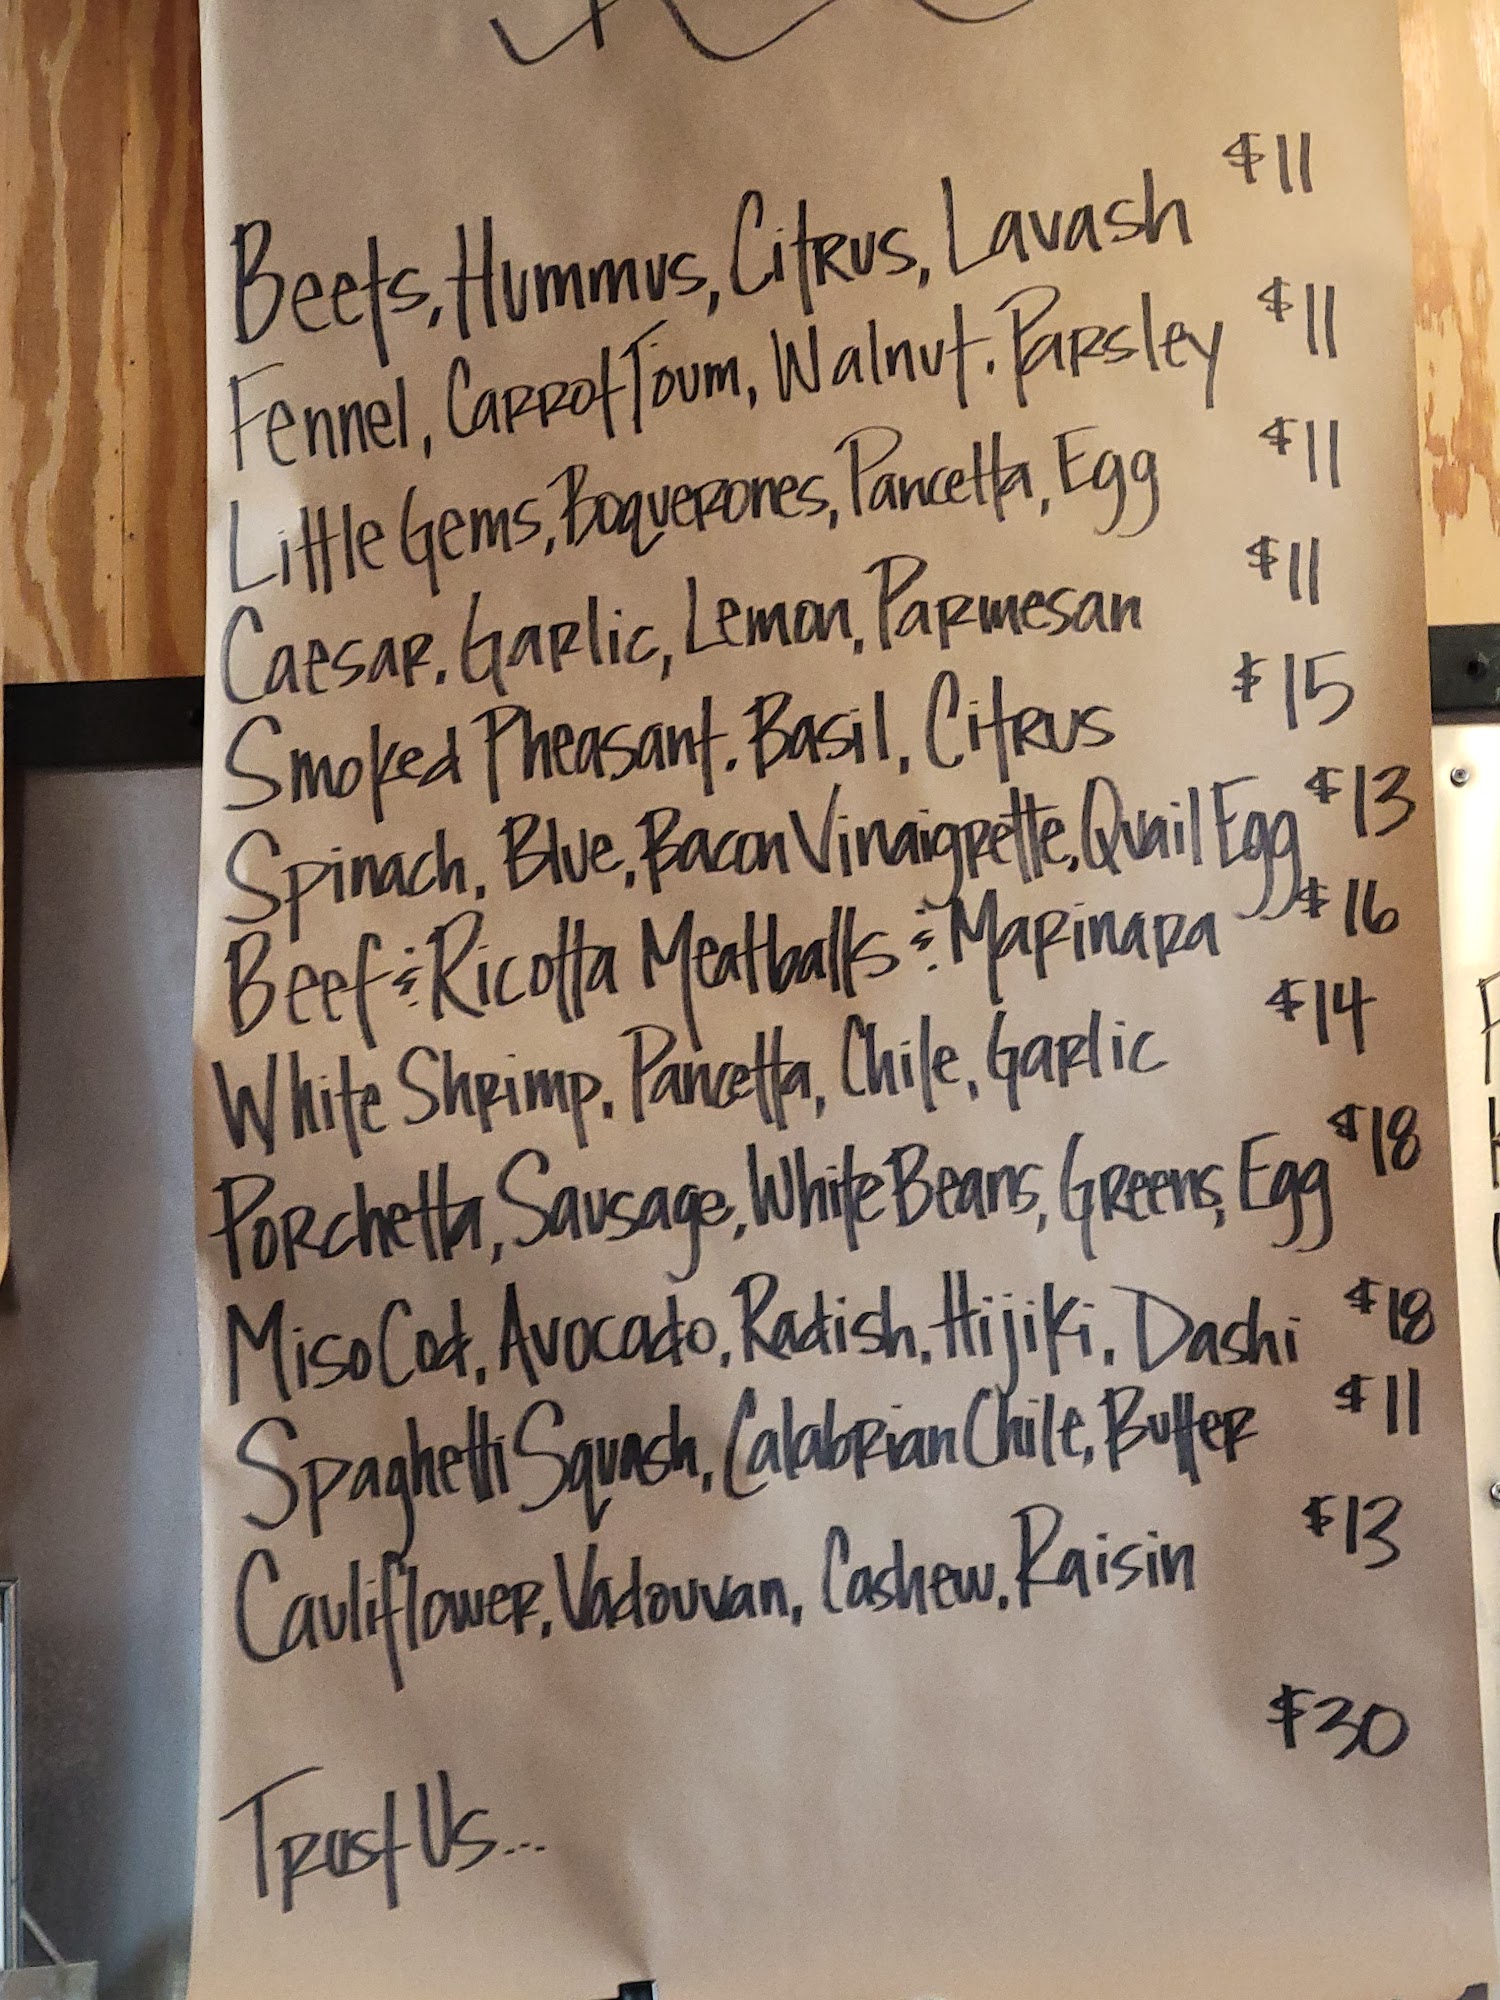 Beets, Hummus, Citrus, Lavash $11
Fennel, Carrot Toum, Walnut, Parsley $11
Little Gems, Boquerones, Pancetta, Egg $11
Caesar, Garlic, Lemon, Parmesan $11
Smoked Pheasant, Basil, Citrus $15
Spinach, Blue, Bacon Vinaigrette, Quail Egg $13
Beef & Ricotta Meatballs & Marinara $16
White Shrimp, Pancetta, Chile, Garlic $14
Porchetta, Sausage, White Beans, Greens, Egg $18
Miso Cod, Avocado, Radish, Hijiki, Dashi $18
Spaghetti Squash, Calabrian Chile, Butter $11
Cauliflower, Vadouvan, Cashew, Raisin $13
Trust Us... $30